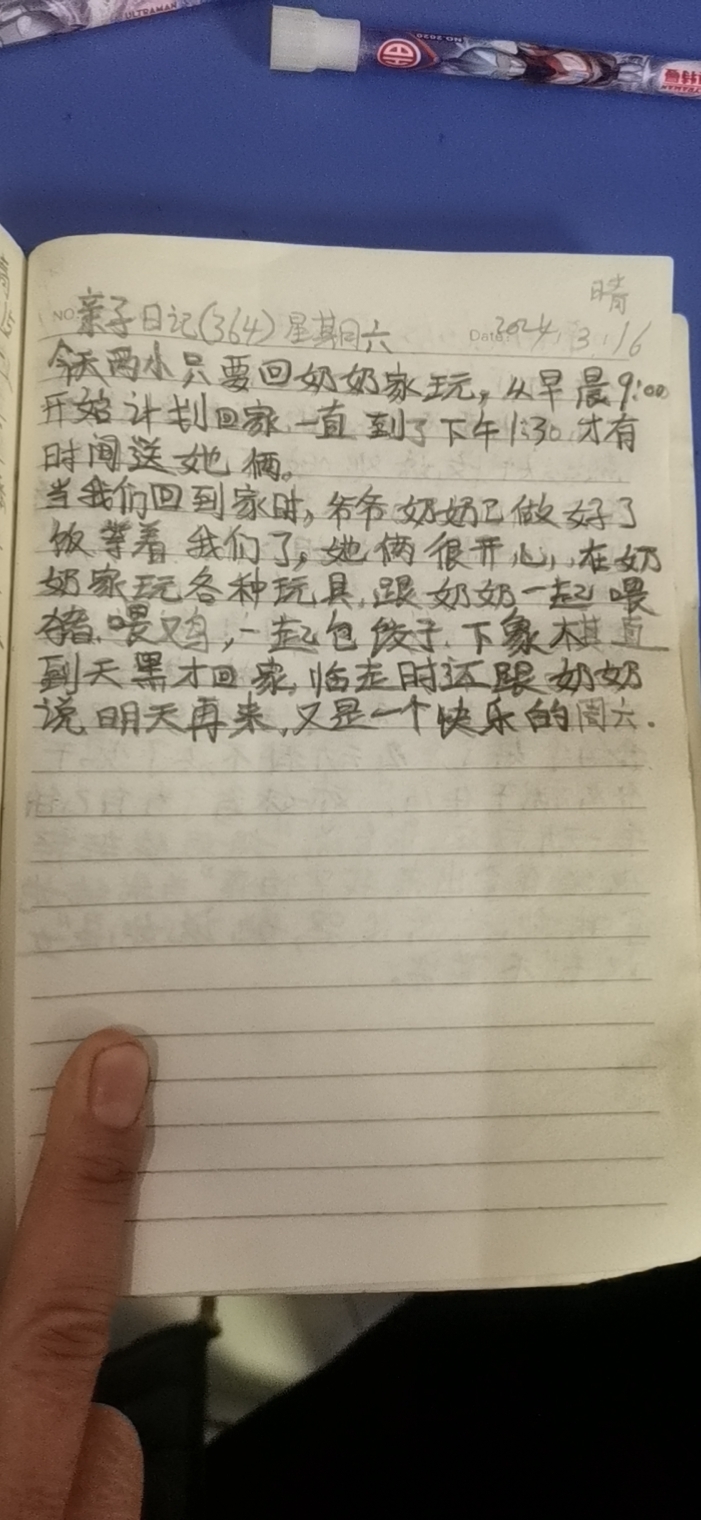 ULTRAMAN
NO 2020
晴
NO. 亲子日记(364) 星期六 Date: 2024.3.16
今天两小只要回奶奶家玩，从早晨9:00
开始计划回家，一直到了下午1:30才有
时间送她俩。
当我们回到家时，爷爷奶奶已做好了
饭等着我们了，她俩很开心，在奶
奶家玩各种玩具，跟奶奶一起喂
猪、喂鸡，一起包饺子、下象棋直
到天黑才回家，临走时还跟奶奶
说，明天再来，又是一个快乐的周六.